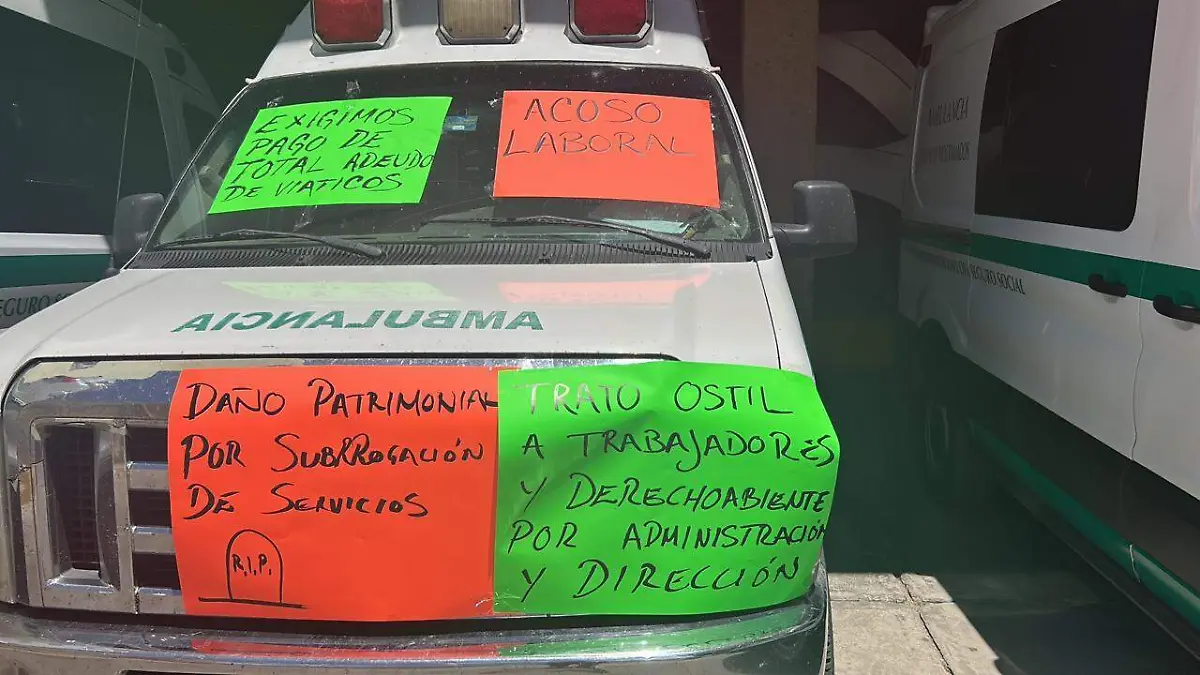 EXIGIMOS
PAGO DE
TOTAL ADEUDO
DE VIATICOS
ACOSO
LABORAL
AMBULANCIA
DAÑO PATRIMONIAL
POR SUBRROGACIÓN
DE SERVICIOS
R.I.P.
TRATO OSTIL
A TRABAJADORES
Y DERECHOABIENTE
POR ADMINISTRACIÓN
Y DIRECCIÓN
AMBULANCIA
SEGURO SOCIAL
SEGURO